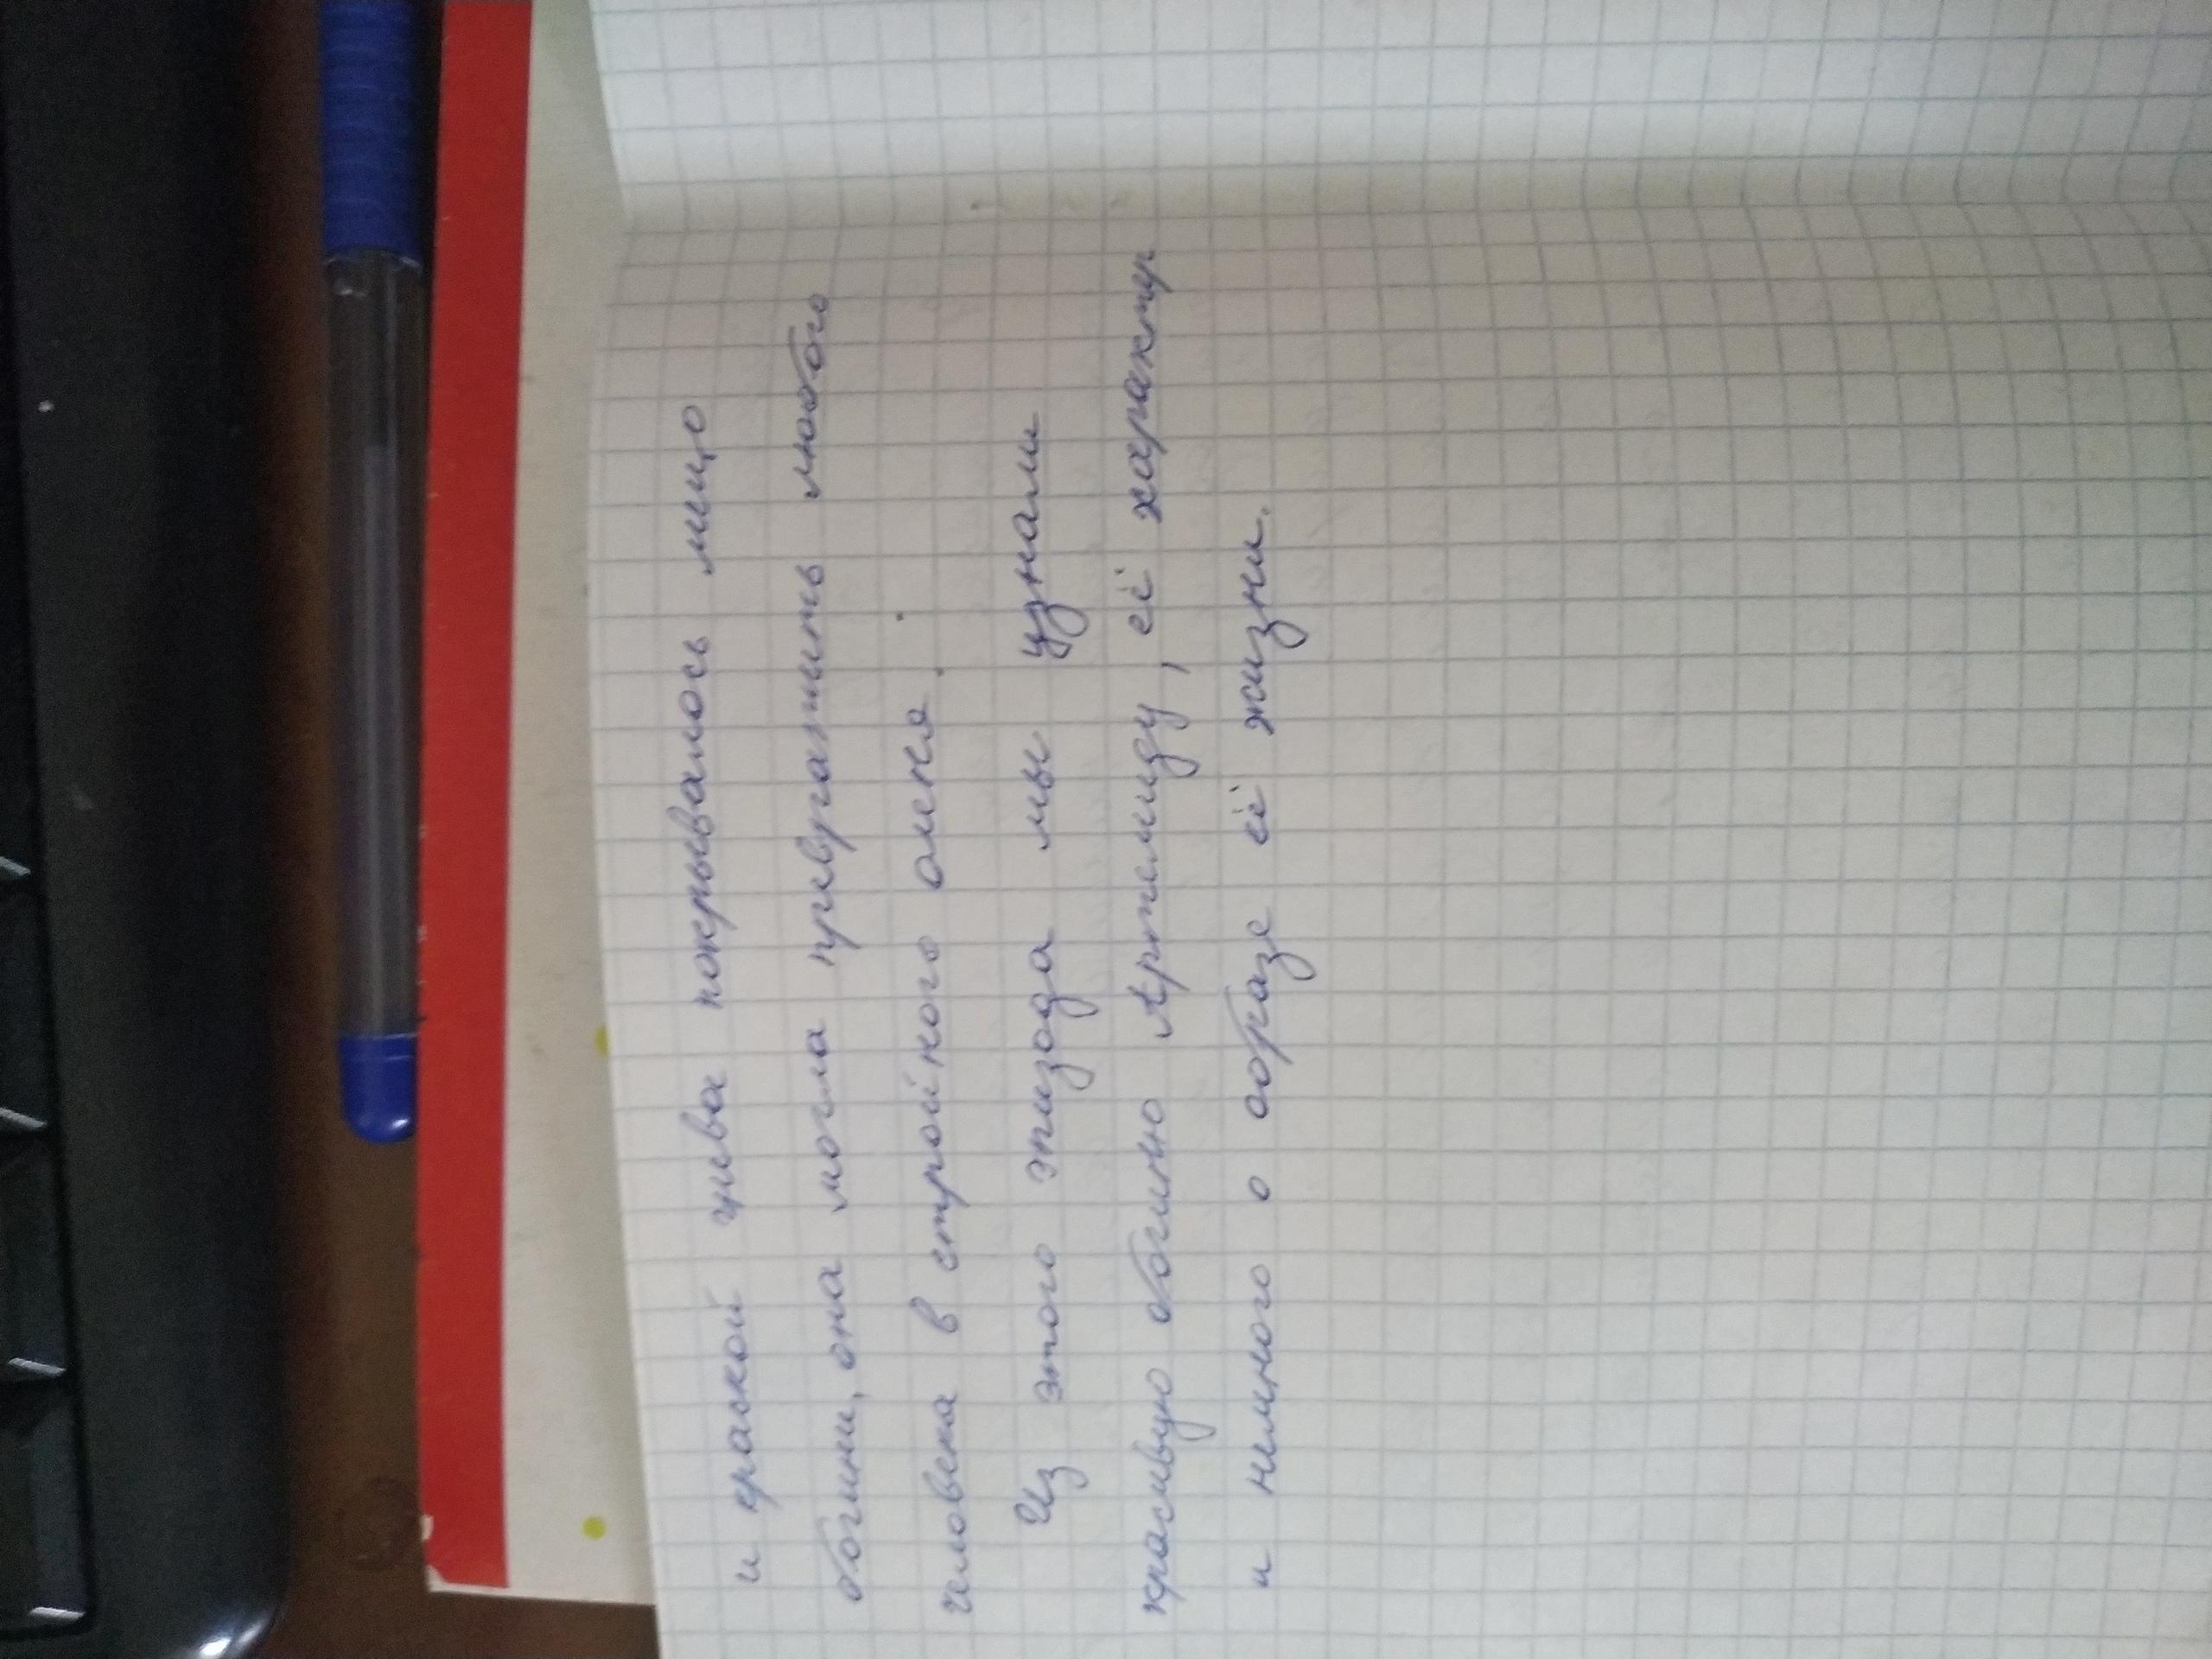 и краской гнева покрывалось лицо
богини, она могла превратить любого
человека в стройного оленя.
Из этого эпизода мы узнали
красивую богиню Артемиду, её характер
и немного о образе её жизни.